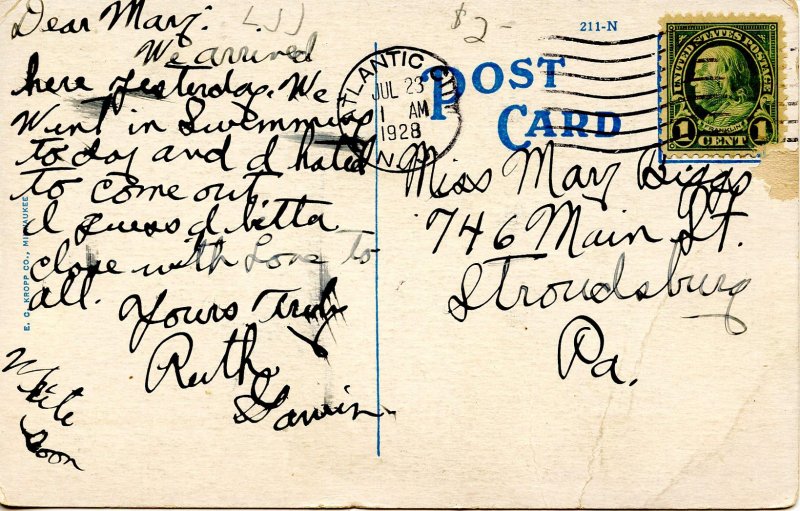 Dear Mary:
We arrived
here yesterday. We
Went in Swimming
today and I hated
to come out.
I guess I betta
close with Love to
all.
Yours Truly
Ruth
Write
Soon
E. C. KROPP CO., MILWAUKEE
$2-
211-N
ATLANTIC CITY
JUL 23
1 AM
1928
N.J.
POST
CARD
UNITED STATES POSTAGE
FRANKLIN
1 CENT 1
Miss Mary Biggs
746 Main St.
Stroudsburg
Pa.